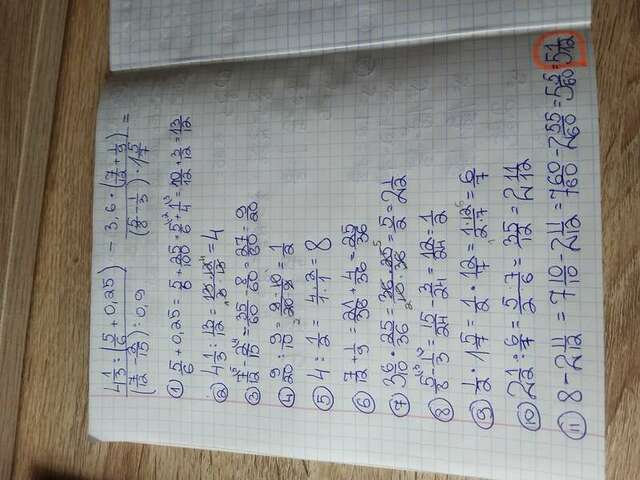 4 1/3 : (5/6 + 0,25) / (7/12 - 2/15) : 0,9 - 3,6 · (7/12 + 1/9) / (5/8 - 1/3) · 1 5/7 =
① 5/6 + 0,25 = 5/6 + 25/100 = 5/6 ·2 + 1/4 ·3 = 10/12 + 3/12 = 13/12
② 4 1/3 : 13/12 = 13 · 12 / 3 · 13 = 4
③ 7/12 ·5 - 2/15 ·4 = 35/60 - 8/60 = 27/60 = 9/20
④ 9/20 : 9/10 = 9 · 10 / 20 · 9 = 1/2
⑤ 4 : 1/2 = 4 · 2 / 1 · 1 = 8
⑥ 7/12 + 1/9 = 21/36 + 4/36 = 25/36
⑦ 3 6/10 · 25/36 = 36 · 25 / 10 · 36 = 5/2 = 2 1/2
⑧ 5/8 ·3 - 1/3 = 15/24 - 3/24 = 12/24 = 1/2
⑨ 1/2 · 1 5/7 = 1/2 · 12/7 = 1 · 12 / 2 · 7 = 6/7
⑩ 2 1/2 : 6/7 = 5 · 7 / 2 · 6 = 35/12 = 2 11/12
⑪ 8 - 2 11/12 = 7 10/10 - 2 11/12 = 7 60/60 - 2 55/60 = 5 5/60 = 5 1/12